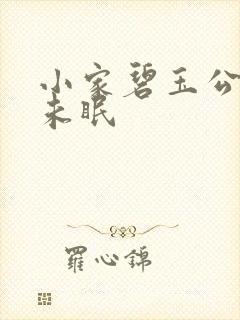 小家碧玉公
未眠
羅心錦